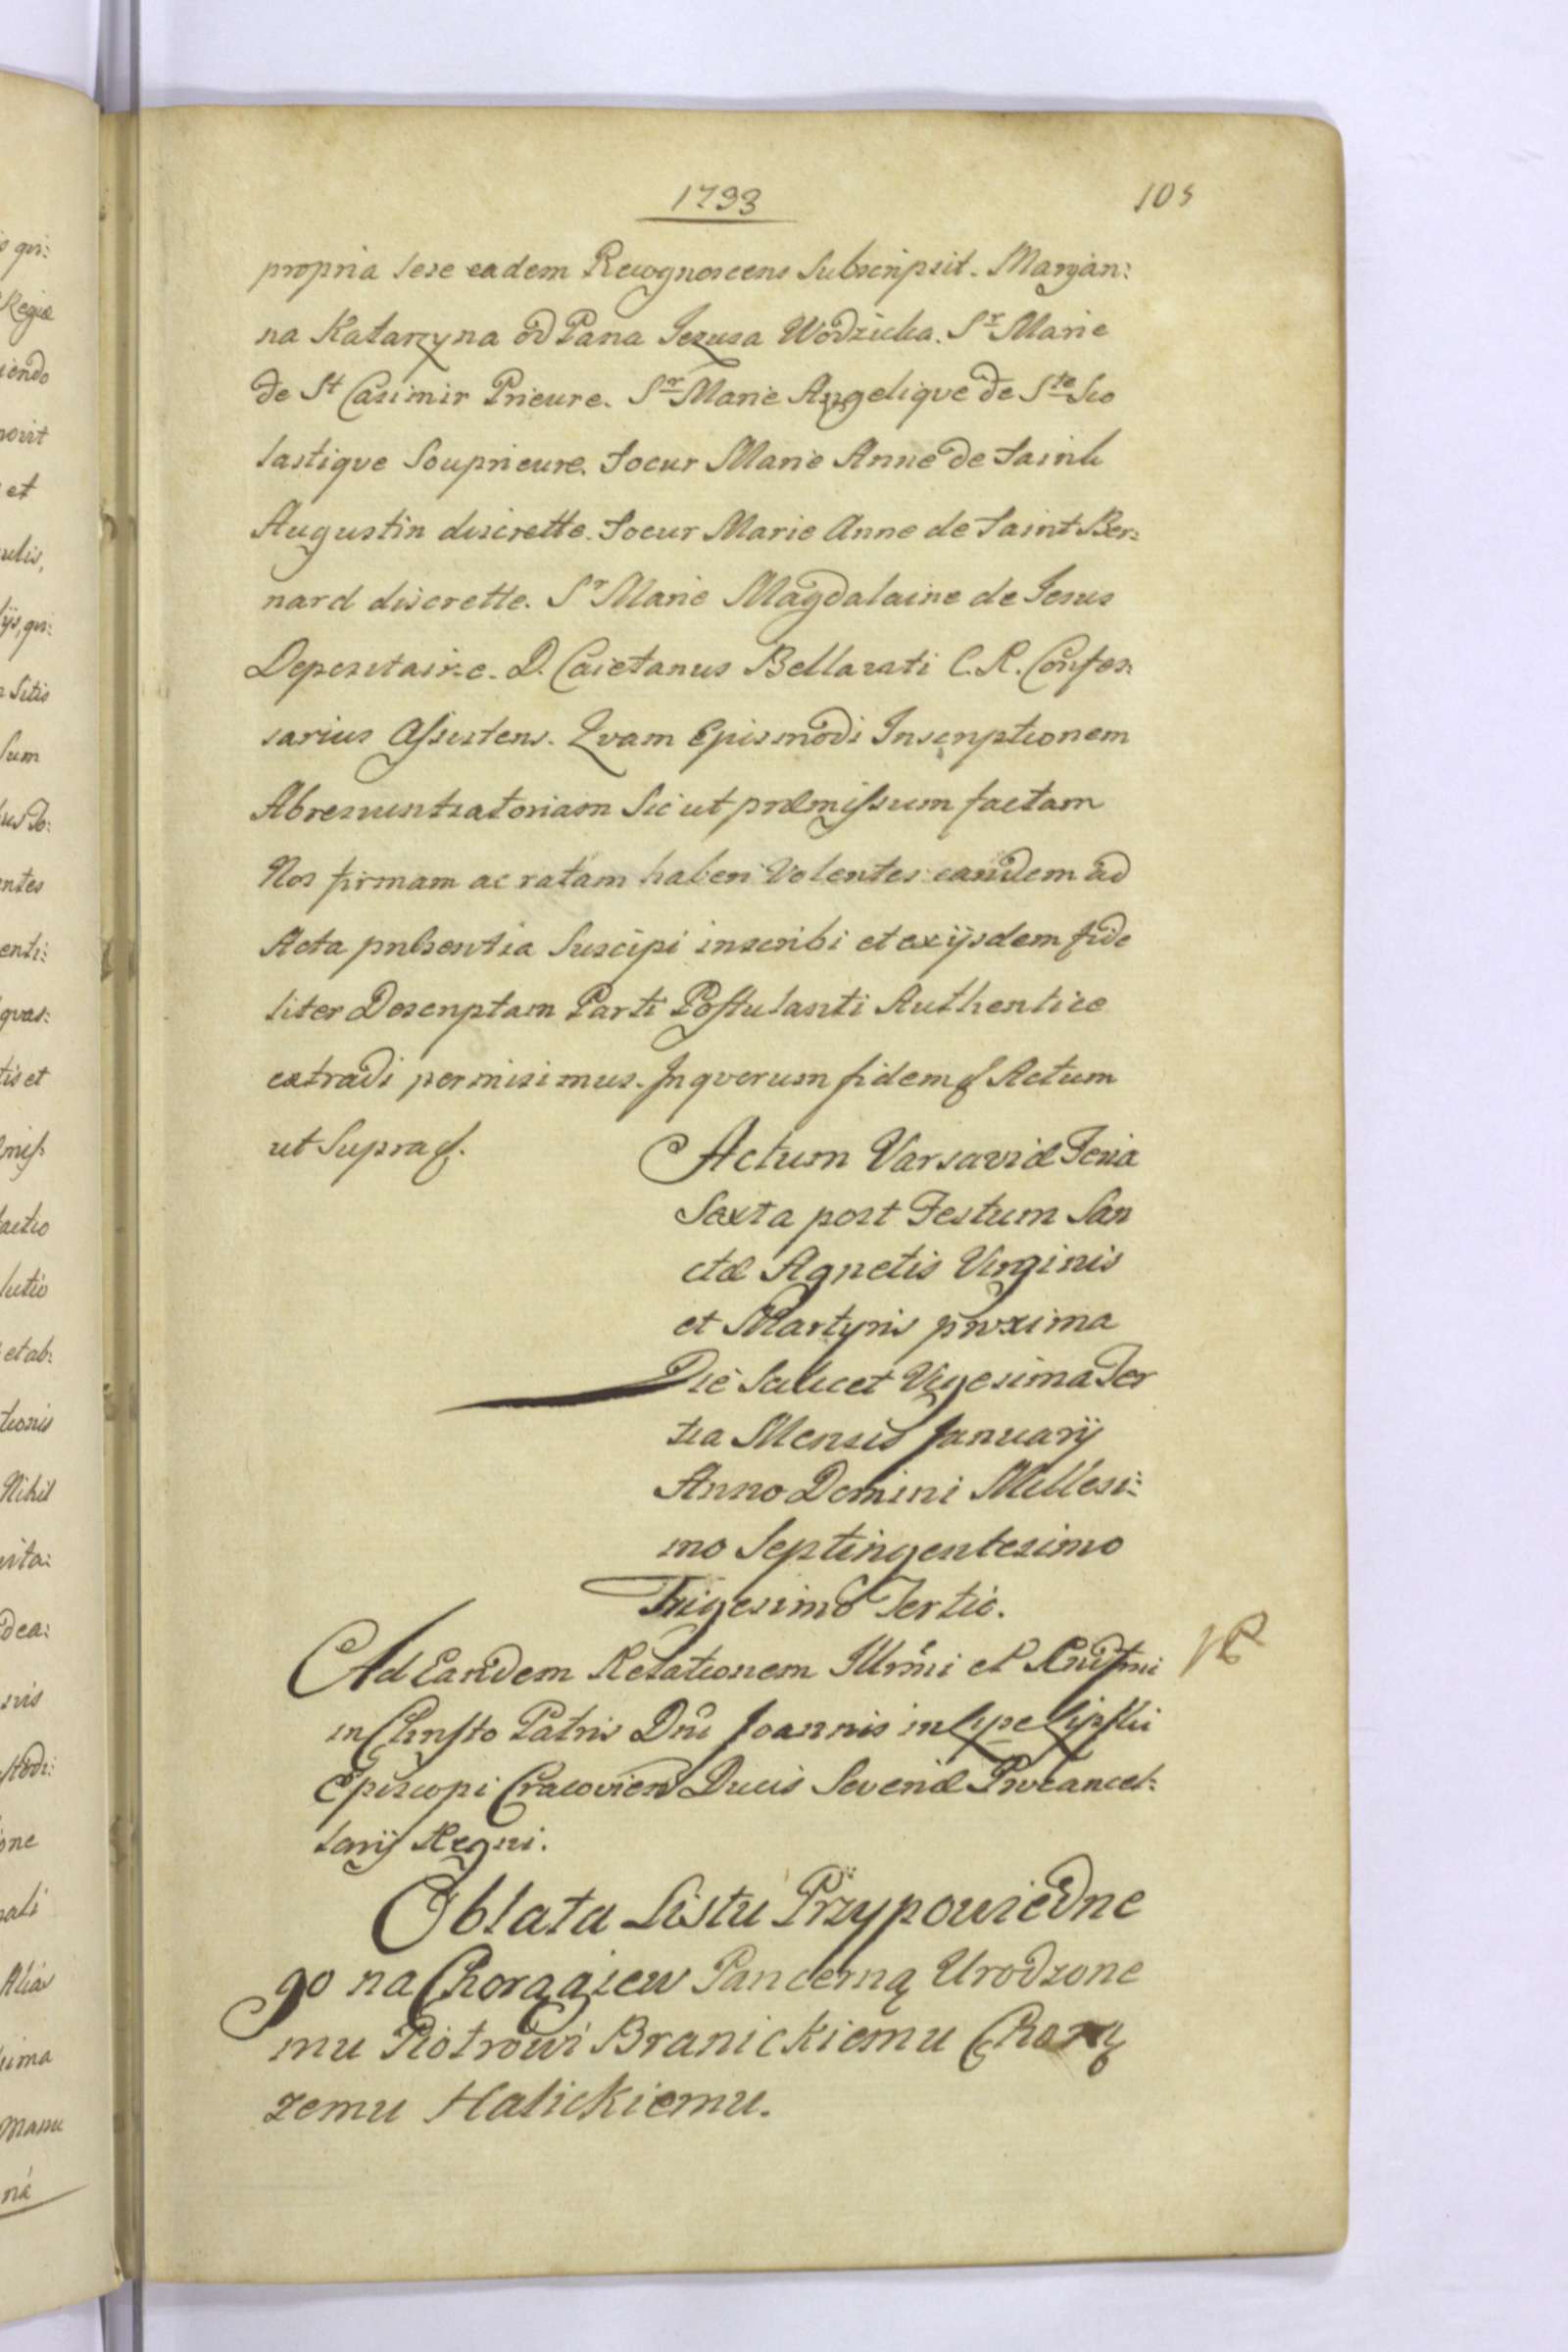 1733
105
propria sese eadem Recognoscens Subscripsit. Maryan:
na Katarzyna od Pana Jezusa Wodzicka. Sr Marie
de St Casimir Prieure. Sr Marie Angelique de Ste Sco
lastique Souprieure. Soeur Marie Anne de Saint
Augustin discrette. Soeur Marie Anne de Saint Ber:
nard discrette. Sr Marie Magdalaine de Jesus
Depositaire. D. Caietanus Bellarati C. R. Confes:
sarius Assistens. Qvam Ejusmodi Inscriptionem
Abrenuntiatoriam Sic ut præmissum factam
Nos firmam ac ratam haberi Volentes eandem ad
Acta præsentia Suscipi inscribi et ex ijsdem fide
liter Descriptam Parti Postulanti Authentice
extradi permisimus. In qvorum fidem Actum
ut Supra.
Actum Varsaviæ Feria
Sexta post Festum San
ctæ Agnetis Virginis
et Martyris proxima
Die Scilicet Vigesima Ter
tia Mensis Januarij
Anno Domini Millesi:
mo Septingentesimo
Trigesimo Tertio.
Ad Eandem Relationem Illrmi et Rndssmi
in Christo Patris Dni Joannis in Lipe Lipski
Episcopi Cracovien Ducis Severiæ Procancel:
larij Regni.
Oblata Listu Przypowiedne
go na Chorągiew Pancerną Urodzone
mu Piotrowi Branickiemu Chorą
żemu Halickiemu.